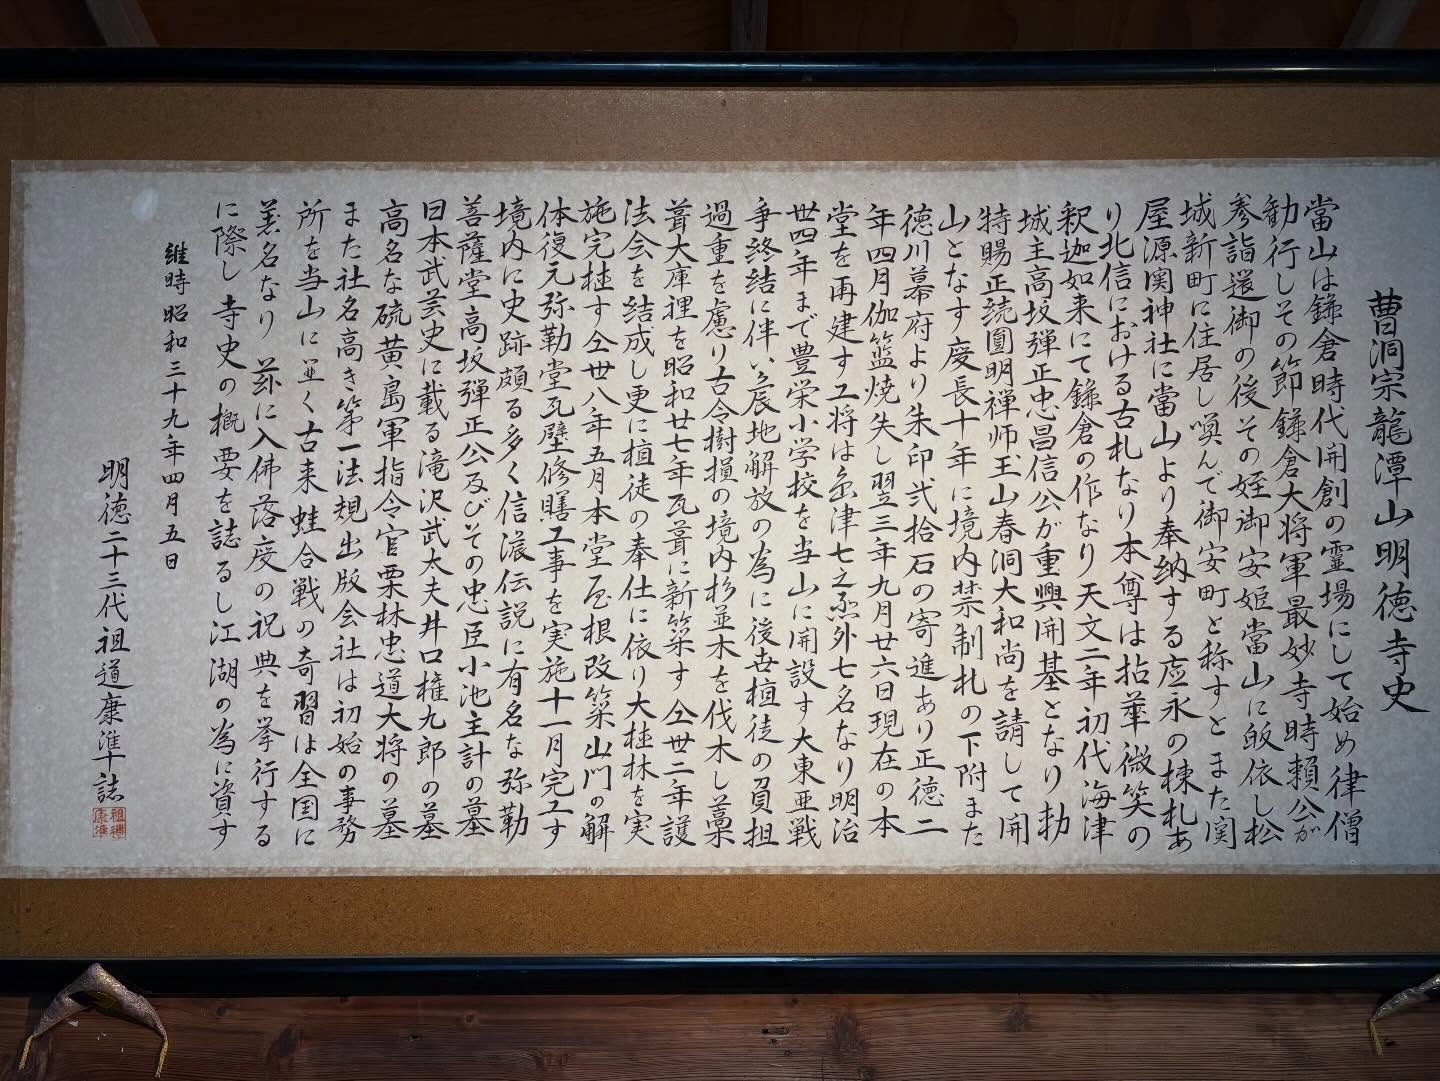 曹洞宗龍潭山明徳寺史
當山は鎌倉時代開創の霊場にして始め律僧
勧行しその節鎌倉大将軍最妙寺時頼公が
参詣還御の後その姪御安姫當山に皈依し松
城新町に住居し喚んで御安町と称すとまた関
屋源関神社に當山より奉納する応永の棟札あ
り北信における古札なり本尊は拈華微笑の
釈迦如来にて鎌倉の作なり天文二年初代海津
城主高坂弾正忠昌信公が重興開基となり勅
特賜正続圓明禅师玉山春洞大和尚を請して開
山となす慶長十年に境内禁制札の下附また
徳川幕府より朱印弐拾石の寄進あり正徳二
年四月伽篮焼失し翌三年九月廿六日現在の本
堂を再建す工将は津七之烝外七名なり明治
丗四年まで豊栄小学校を当山に開設す大東亜戦
争終結に伴い農地解放の為に後世檀徒の負担
過重を慮り古今樹損の境内杉並木を伐木し藁
葺大庫裡を昭和廿七年瓦葺に新築す仝丗二年護
法会を結成し更に檀徒の奉仕に依り大桂林を実
施完遂す仝丗八年五月本堂屋根改築山门の解
体復元弥勒堂瓦壁修膳工事を実施十一月完工す
境内に史跡頗る多く信濃伝説に有名な弥勒
菩薩堂高坂弾正公及びその忠臣小池主計の墓
日本武芸史に載る滝沢武太夫井口権九郎の墓
高名な硫黄島軍指令官栗林忠道大将の墓
また社名高き第一法規出版会社は初始の事務
所を当山に並く古来蛙合戦の奇習は全国に
著名なり 茲に入佛落慶の祝典を挙行する
に際し寺史の概要を誌るし江湖の為に資す
維時昭和三十九年四月五日
明徳二十三代祖道康準誌